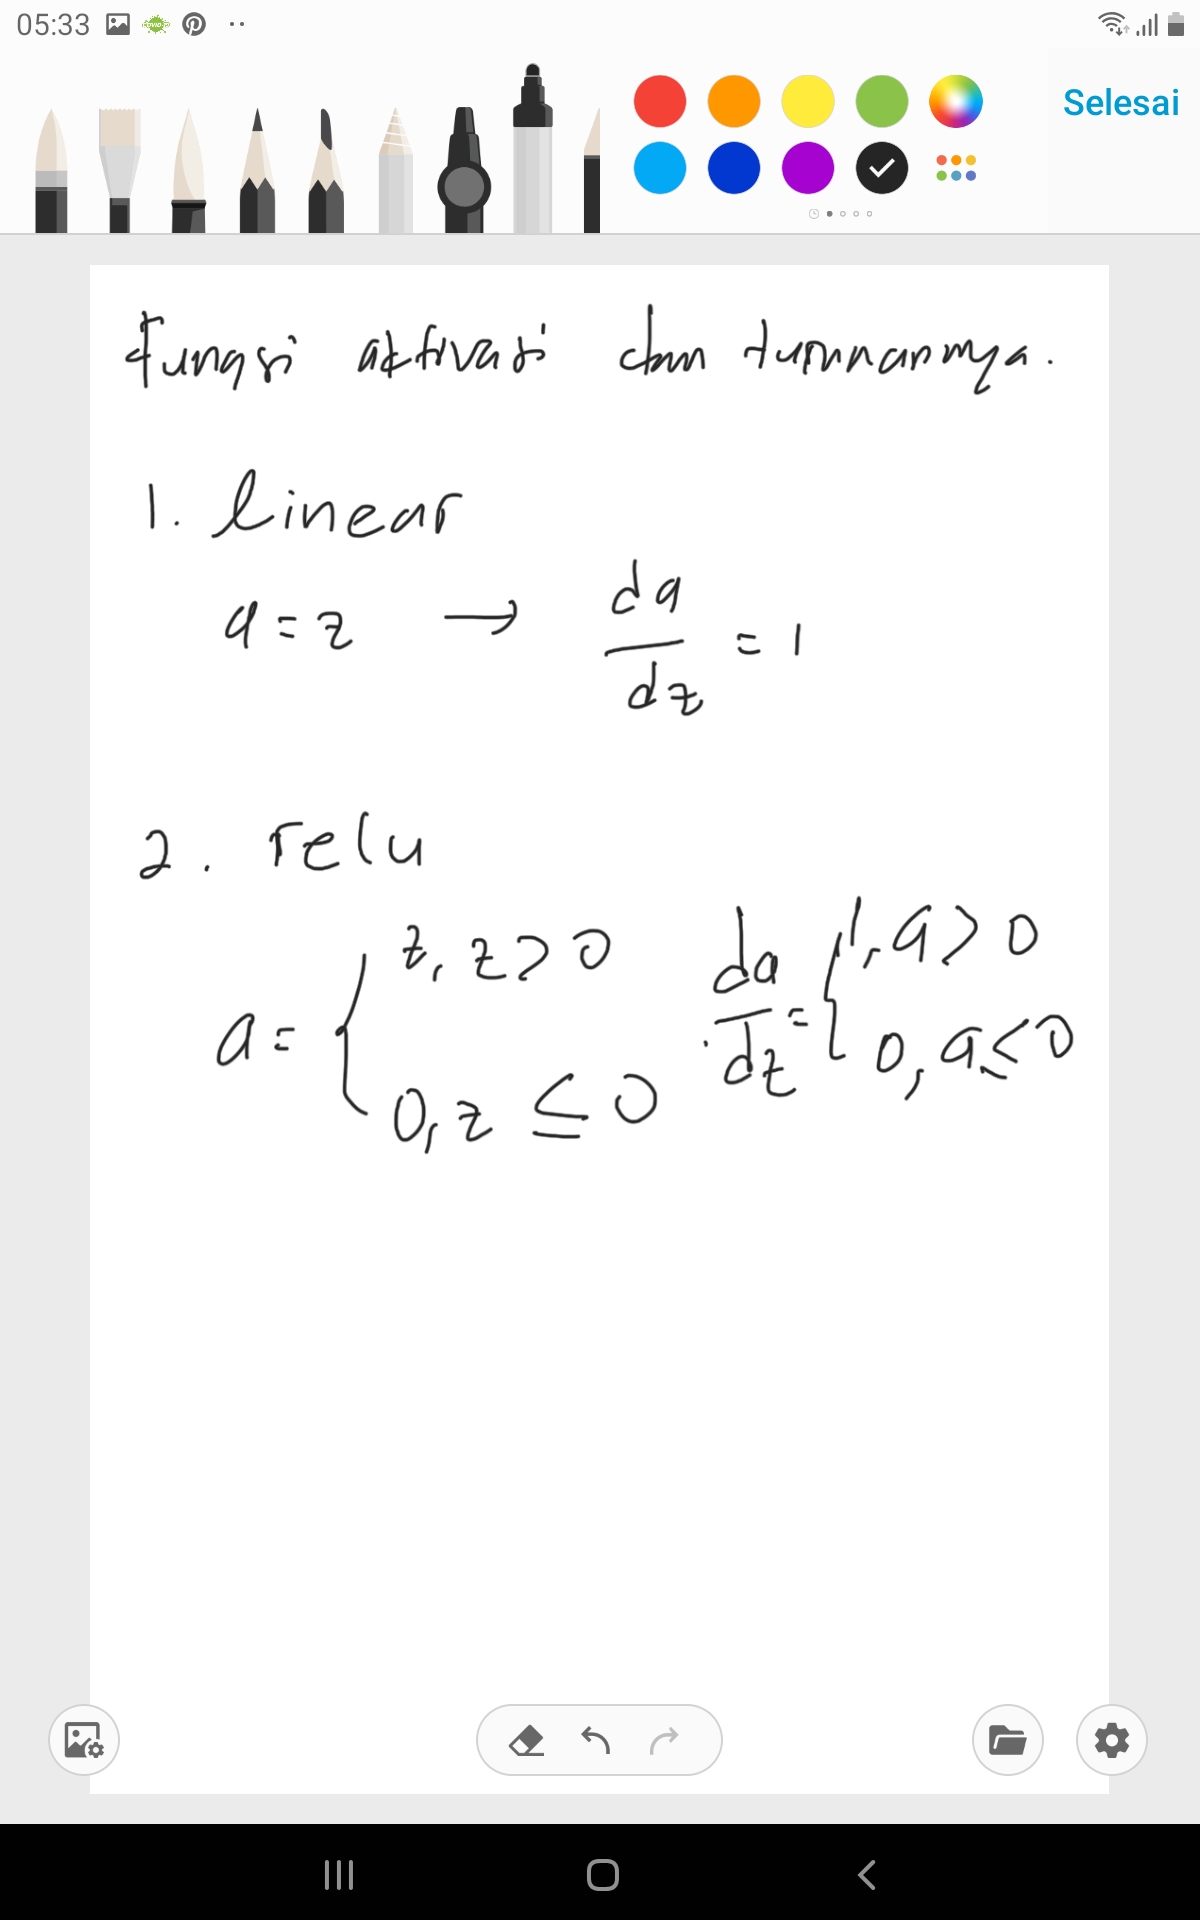 05:33
Selesai
Fungsi aktivasi dan turunannya.
1. linear
a = z → da/dz = 1
2. relu
a = { z, z > 0 da/dz = { 1, a > 0
0, z ≤ 0 0, a ≤ 0